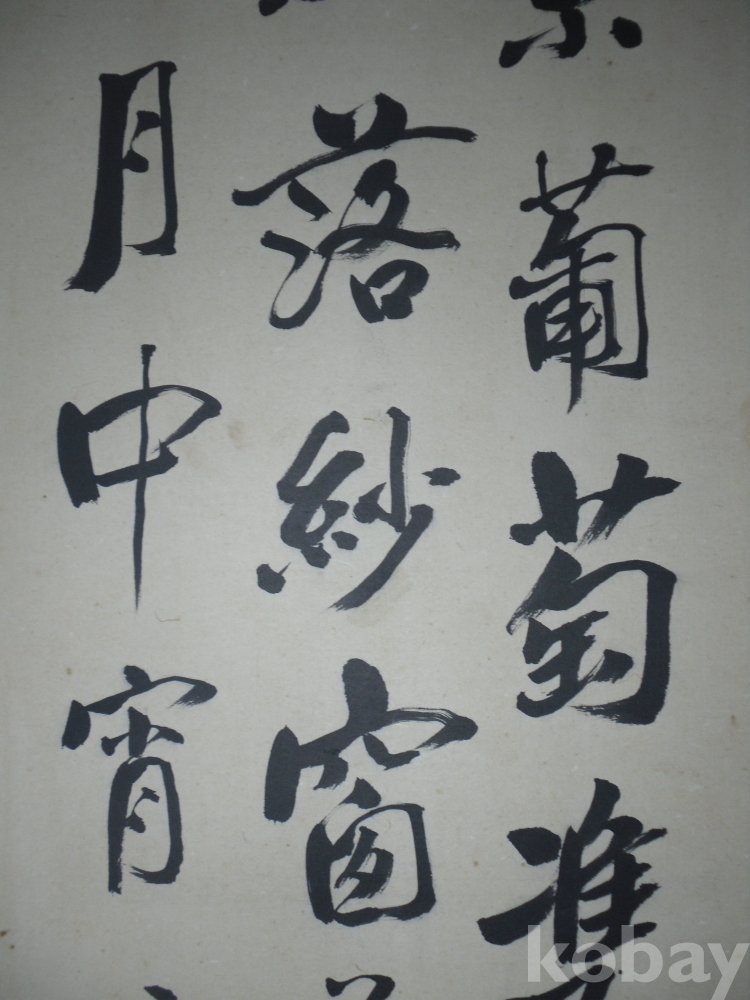 葡萄準
落紗窗
月中宵
kobay